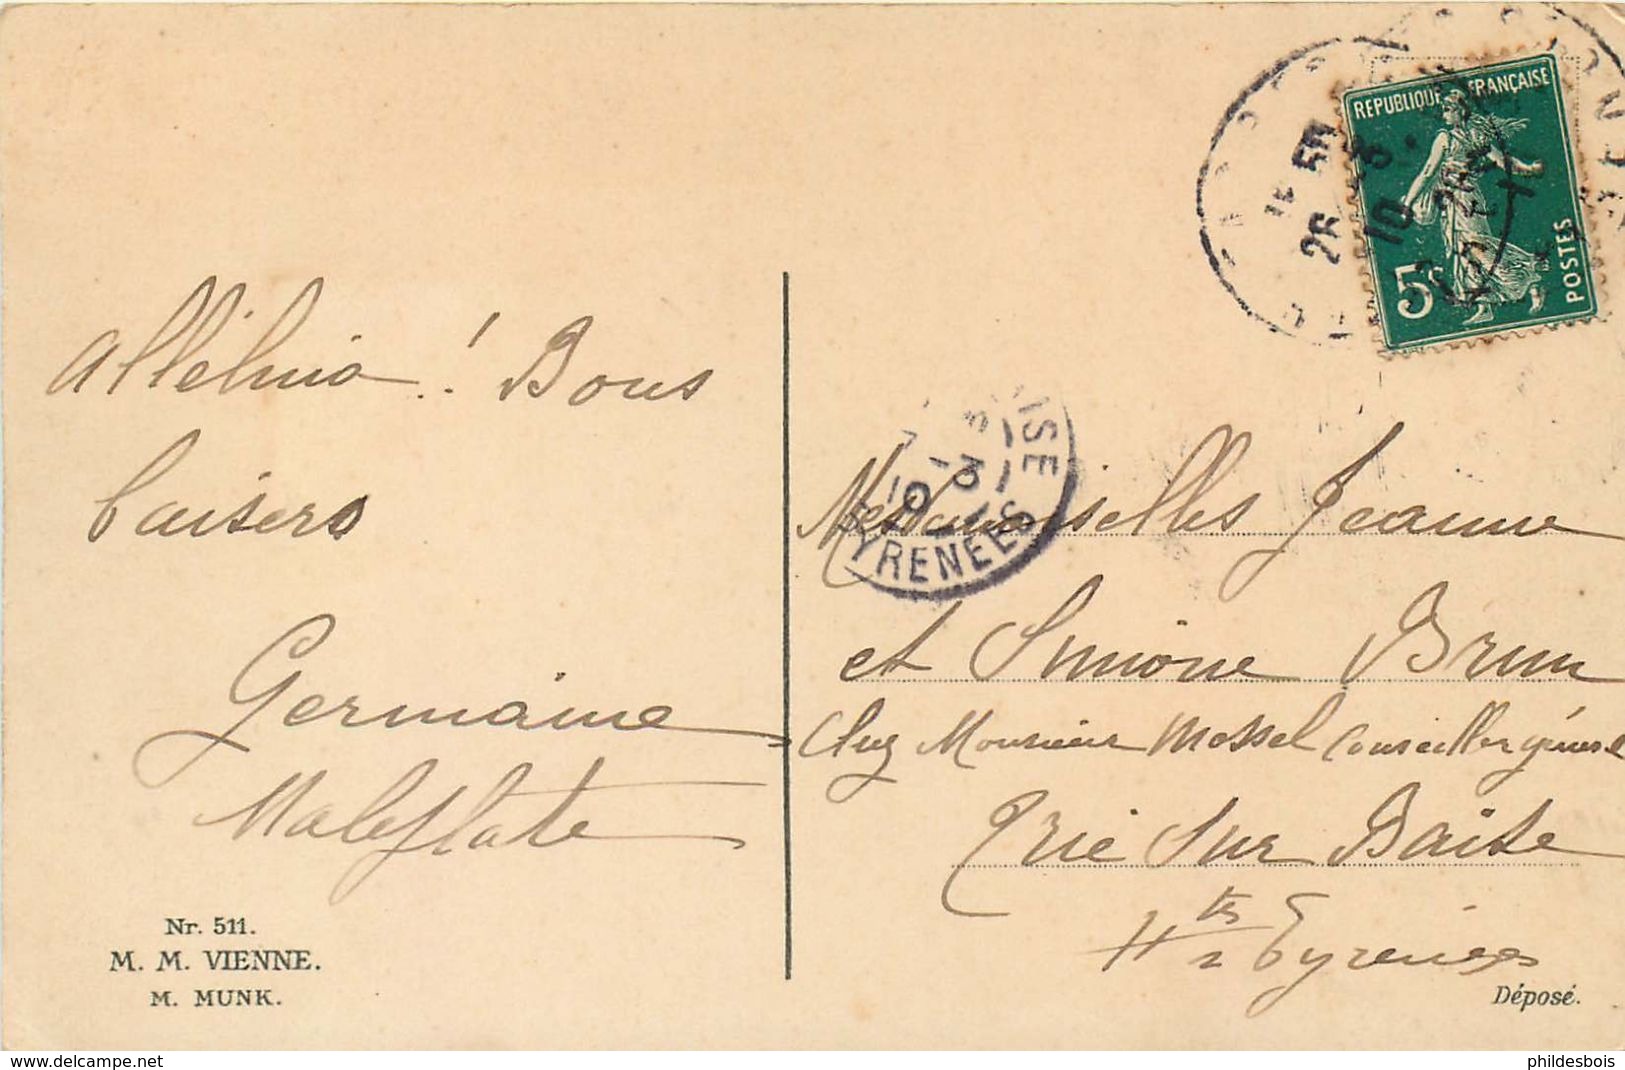 Alléluia ! Bons
baisers
Germaine
Maleplate
Nr. 511.
M. M. VIENNE.
M. MUNK.
REPUBLIQUE FRANÇAISE
5c
POSTES
26
10
ISE
PYRENEES
Mesdemoiselles Jeanne
et Simone Brun
Chez Monsieur Mossel Conseiller général
Trie sur Baïse
Htes Pyrénées
Déposé.
delcampe.net
phildesbois